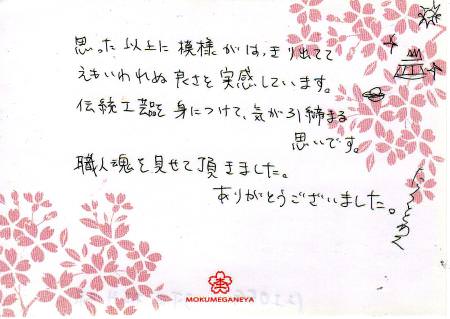 思った以上に模様がはっきり出てて
えもいわれぬ良さを実感しています。
伝統工芸を身につけて、気が引締まる
思いです。
職人魂を見せて頂きました。
ありがとうございました。
MOKUMEGANEYA